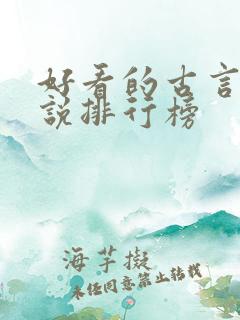 好看的古言
說排行榜
海芋擬
未经同意禁止转载